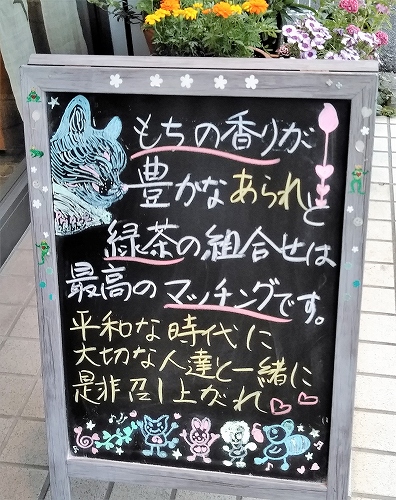 もちの香りが
豊かなあられと
緑茶の組合せは
最高のマッチングです。
平和な時代に
大切な人達と一緒に
是非召し上がれ